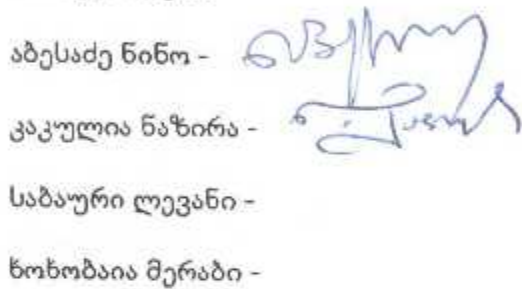 აბესაძე ნინო -
კაკულია ნაზირა -
საბაური ლევანი -
ხოხობაია მერაბი -